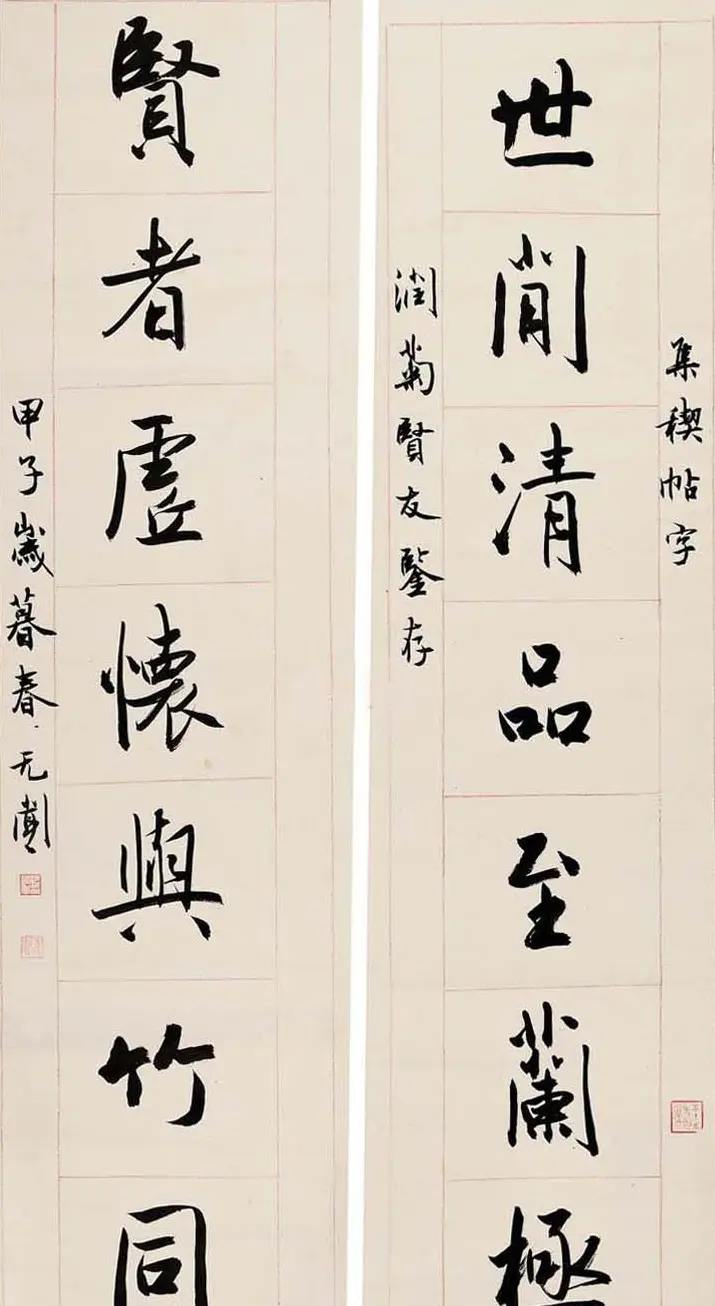 集稧帖字
世间清品至蘭極
润菊賢友鑒存
賢者虛懷與竹同
甲子歲暮春无闷